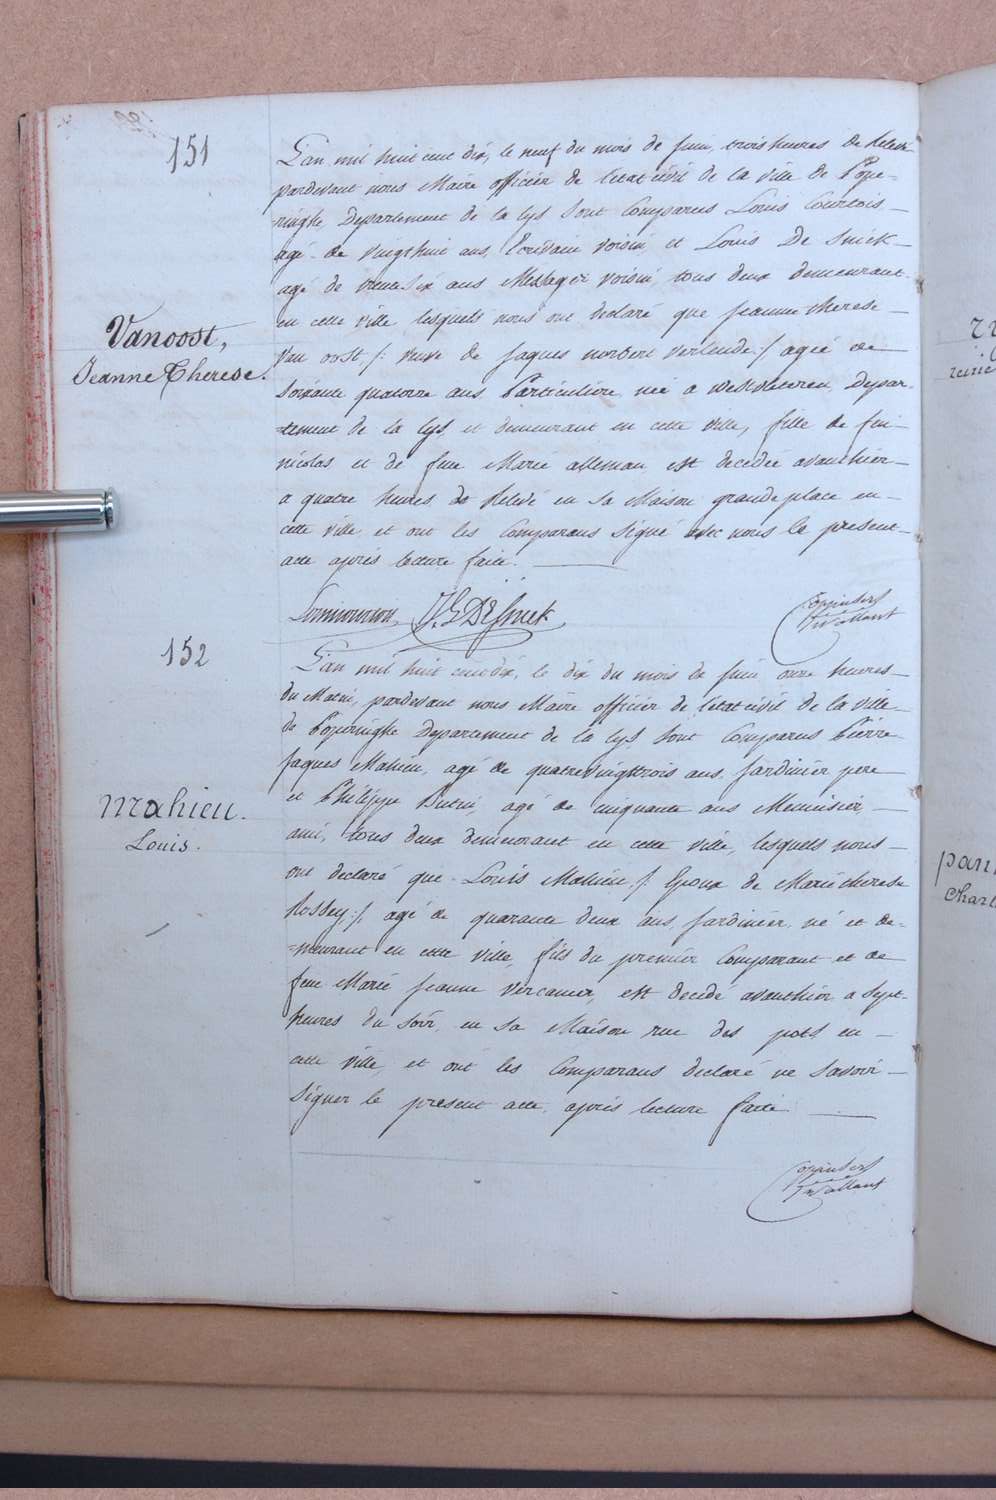 151
L'an mil huit cent dix, le neuf du mois de juin, trois heures de Relevé
pardevant nous Maire officier de l'etat civil de la ville de Pope-
ringhe, Departement de la Lys sont Comparus Louis Courtois
agé de vingthuit ans, Ecrivain voisin, et Louis De Snick
agé de trente Six ans Messager voisin, tous deux demeurant
en cette ville, lesquels nous ont declaré que Jeanne therese
Van oost /: veuve de Jaques norbert verlende :/ agée de
Soixante quatorze ans, Particuliere, née a Westvleteren, Depar-
tement de la Lys, et demeurant en cette ville, fille de feu
nicolas et de feue Marie alleman, est decedée avanthier
a quatre heures de Relevé en sa Maison grande place en
cette ville, et ont les Comparans Signé avec nous le present
acte après lecture faite.
Vanoost,
Jeanne Therese.
J. L. DeSnick
152
L'an mil huit cent dix, le dix du mois de juin, onze heures
du Matin, pardevant nous Maire officier de l'etat civil de la ville
de Poperinghe Departement de la Lys sont Comparus Pierre
Jaques Mahieu, agé de quatrevingttrois ans, Jardinier pere
et Philippe agé de cinquante ans Menuisier,
ami, tous deux demeurant en cette ville, lesquels nous
ont declaré que Louis Mahieu /: Epoux de Marie therese
Rossey :/, agé de quarante deux ans, Jardinier, né et de-
meurant en cette ville, fils du premier Comparant et de
feue Marie Jeanne Vercamer, est decedé avanthier a sept
heures du soir, en sa Maison rue des pots en
cette ville, et ont les Comparans declaré ne savoir
Signer le present acte, après lecture faite
Mahieu.
Louis.